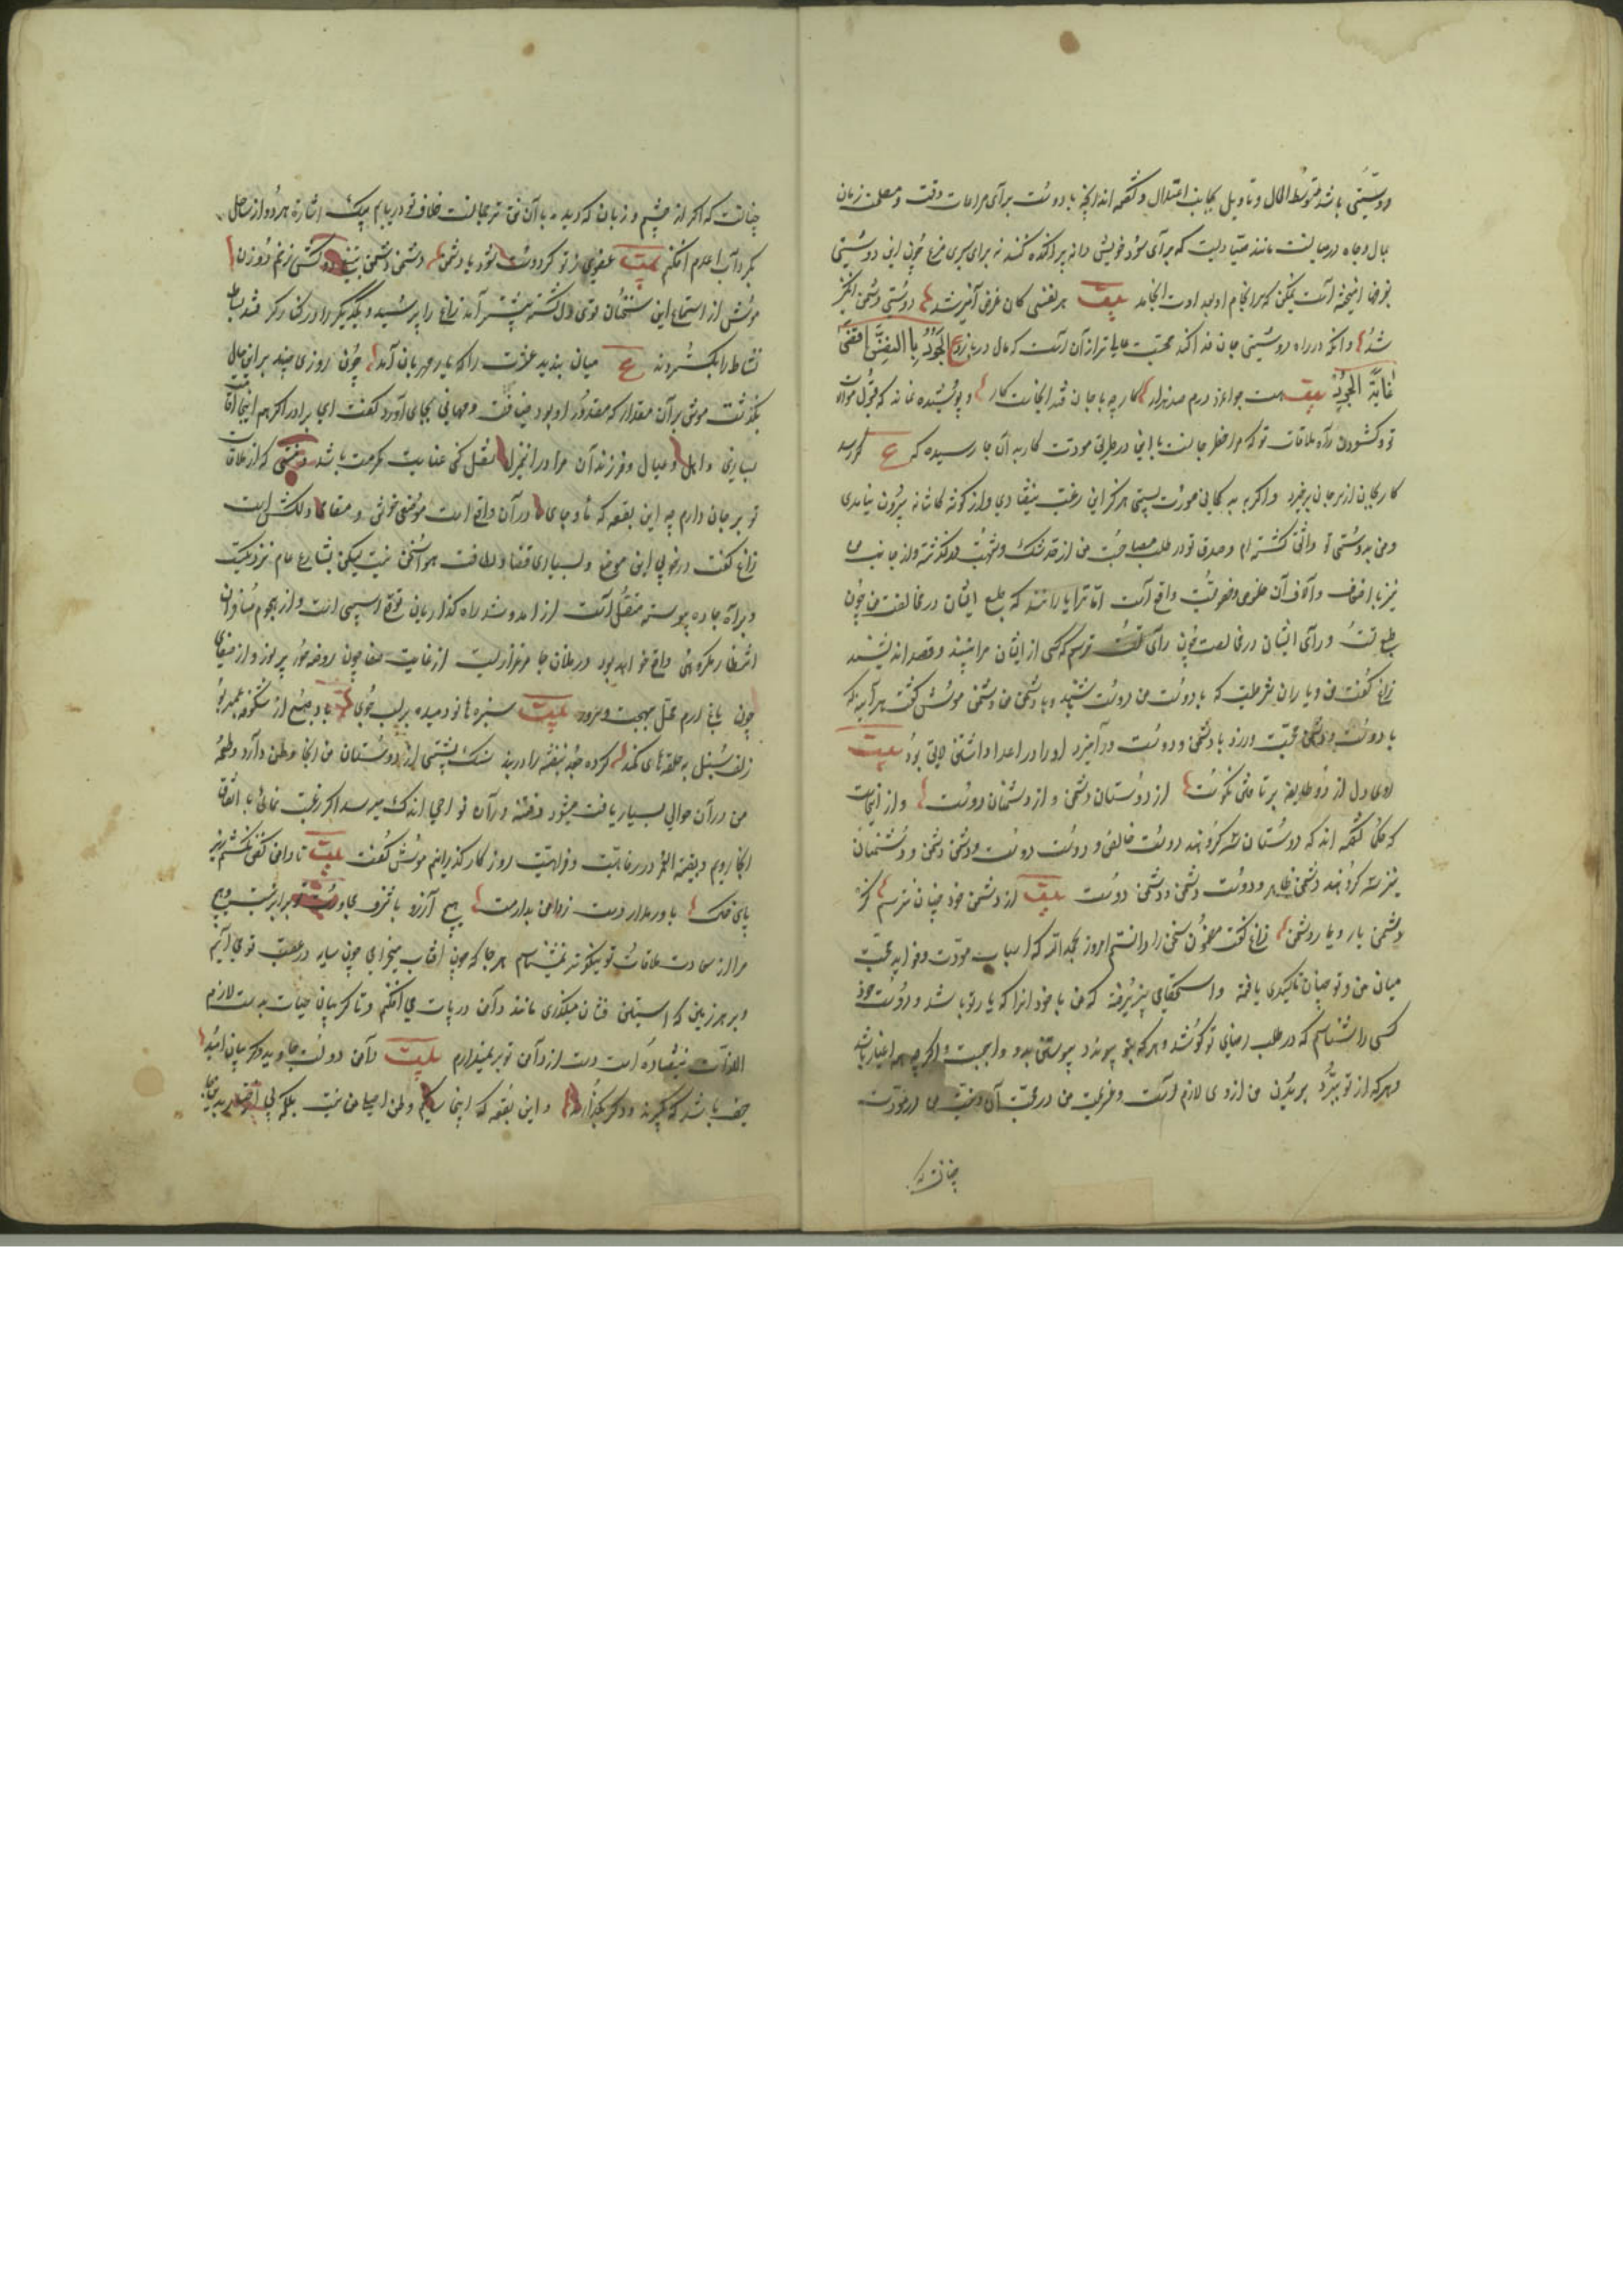 دوستی باشد متوسط الحال و تاویل بجانب اعتدال و گفته اند آنچه با دوست برای مراعات وقت و مصلحت زمان
بمال و جاه در میانست مانند صیادیست که برای سود خویش دانه پراکنده کند نه برای سیری مرغ چون این دوستی
بغرض آمیخته است یمکن که سرانجام او بعداوت انجامد بیت هر نفسی کان غرض آمیز شد دوستی دشمن انگیز
شد و آنکه در راه دوستی جان فدا کند محبت عالی تر از آن است که مال در بازد ع الجود بالنفس اقصی
غایة الجود بیت هست جوانمرد درم صد هزار کار چو با جان فتد آنجاست کار و پوشیده نماند که قبول موالات
تو و کشودن راه ملاقات تو که مرا خطر جانست با این در طریق مودت کار به آن جا رسیده که ع گر رسد
کار بجان از سر جان برخیزد و اگر بد گمانی صورت بستی هرگز این رغبت نیفتادی و از گوشه کاشانه بیرون نیامدی
و من بدوستی تو واثق گشته ام و صدق تو در طلب مصاحبت من از حد شک و شبهت در گذشته و از جانب من
نیز باضعاف و آلاف آن خلوص و خصوصیت واقع است اما ترا یارانند که طبع ایشان در مخالفت من چون
طبع تست و رای ایشان در مخالصت چون رای تو نیست ترسم که کسی از ایشان مرا بیند و قصد اندیشد
زاغ گفت من و یاران شرطست که با دوست من دوست شنید و با دشمن من دشمن موش گفت هر آینه که
با دوست و دشمن محبت ورزد با دشمن و دوست در آمیزد او را در اعدا داشتن لایق بود بیت
روی دل از دو طایفه بر تافتن نکوست از دوستان دشمن و از دشمنان دوست و از اینجاست
که حکما گفته اند که دوستان سه گروهند دوست خالص و دوست دوست و دشمن دشمن و دشمنان
نیز سه گروهند دشمن ظاهر و دوست دشمن و دشمن دوست بیت از دشمن خود چنان نترسم کز
دشمن یار و یار دشمن زاغ گفت مضمون سخن را دانستم امروز بحمدالله که اسباب مودت و قواید محبت
میان من و تو چنان تاکیدی یافته و استحکامی پذیرفته که من با خود آنرا که یار تو باشد و دوست خود
کسی را شناسم که در طلب رضای تو کوشد و هر که بتو پیوندد پیوستن بدو واجبست و اگر چه همه اغیار باشد
و هر که از تو ببرد بریدن من از وی لازم است و عزیمت من در محبت آن در تست من در مودت
چنانست که
چنانست که اگر از چشم و زبان که دیده بان تن و ترجمانست خلاف تو دریابم بیک اشارة هر دو از ساحل
بگرداب اعدام افکنم بیت عضوی ز تو گر دوست شود با دشمن دشمن دشمن بینی دو کشتی زنیم دو زن
موش از استماع این سخنان قوی دل گشته پیشتر آمد زاغ را پرسید و یکدیگر را در کنار گرفته بساط
نشاط را بگستردند ع میان بندید عشرت را که یار مهربان آمد چون روزی چند بر این حال
بگذشت موش بر آن مقدار که مقدور او بود ضیافت و مهمانی بجای آورد گفت ای برادر اگر هم اینجا اقامت
سازی و اهل و عیال و فرزندان مرا در آن منزل نقل کنی غایت مکرمت باشد و منتی که از ملاقات
تو بر جان دارم چه این بقعه که ما و جای در آن واقع است موضعی خوش و مقامی دلکش است
زاغ گفت در خوبی این موضع و بسیاری فضا و لطافت هوا سخن نیست لیکن بشارع عام نزدیکست
و براه جاده پیوسته متصل است از آمد و شد راه گذاریان توقع آسیبی است و از هجوم مسافران
انتظار مکروهی واقع خواهد بود و در فلان جا مرغزاریست از غایت صفا چون روضه حور پر نور و از صفای
چون باغ ارم محل بهجت و سرور بیت سبزه ها نو دمیده بر لب جوی باد صبح از شکوفه عنبر بوی
زلف سنبل به حلقه های کمند کرده جعد بنفشه را در بند سنگ پشتی از دوستان من آنجا وطن دارد و طعمه
من در آن حوالی بسیار یافت میشود و فتنه در آن نواحی اندک میرسد اگر رغبت نمائی با اتفاق
آنجا رویم و بقیة العمر در رفاهیت و فراغت روزگار گذرانیم موش گفت بیت تا دامن کفن نکشم زیر
پای خاک باور مدار دست ز دامن بدارمت هیچ آرزو با شرف مجاورت تو برابر نیست و هیچ
مراد از سعادت ملاقات تو نیکوتر نمیشناسم هر جا که چون آفتاب میخرامی چون سایه در عقب تو می آیم
و بر هر زمین که آستین فشان میگذری مانند دامن در پات می افکنم و تا گریبان حیات بدست لازم
اللذات نیفتاده است دست از دامن تو بر نمیدارم بیت دامن دولت جاوید و گریبان امید
حیف باشد که بگیرند و دگر بگذارند و این بقعه که اینجا ساکنم وطن اصلی من نیست بلکه بی اختیار بدینجا